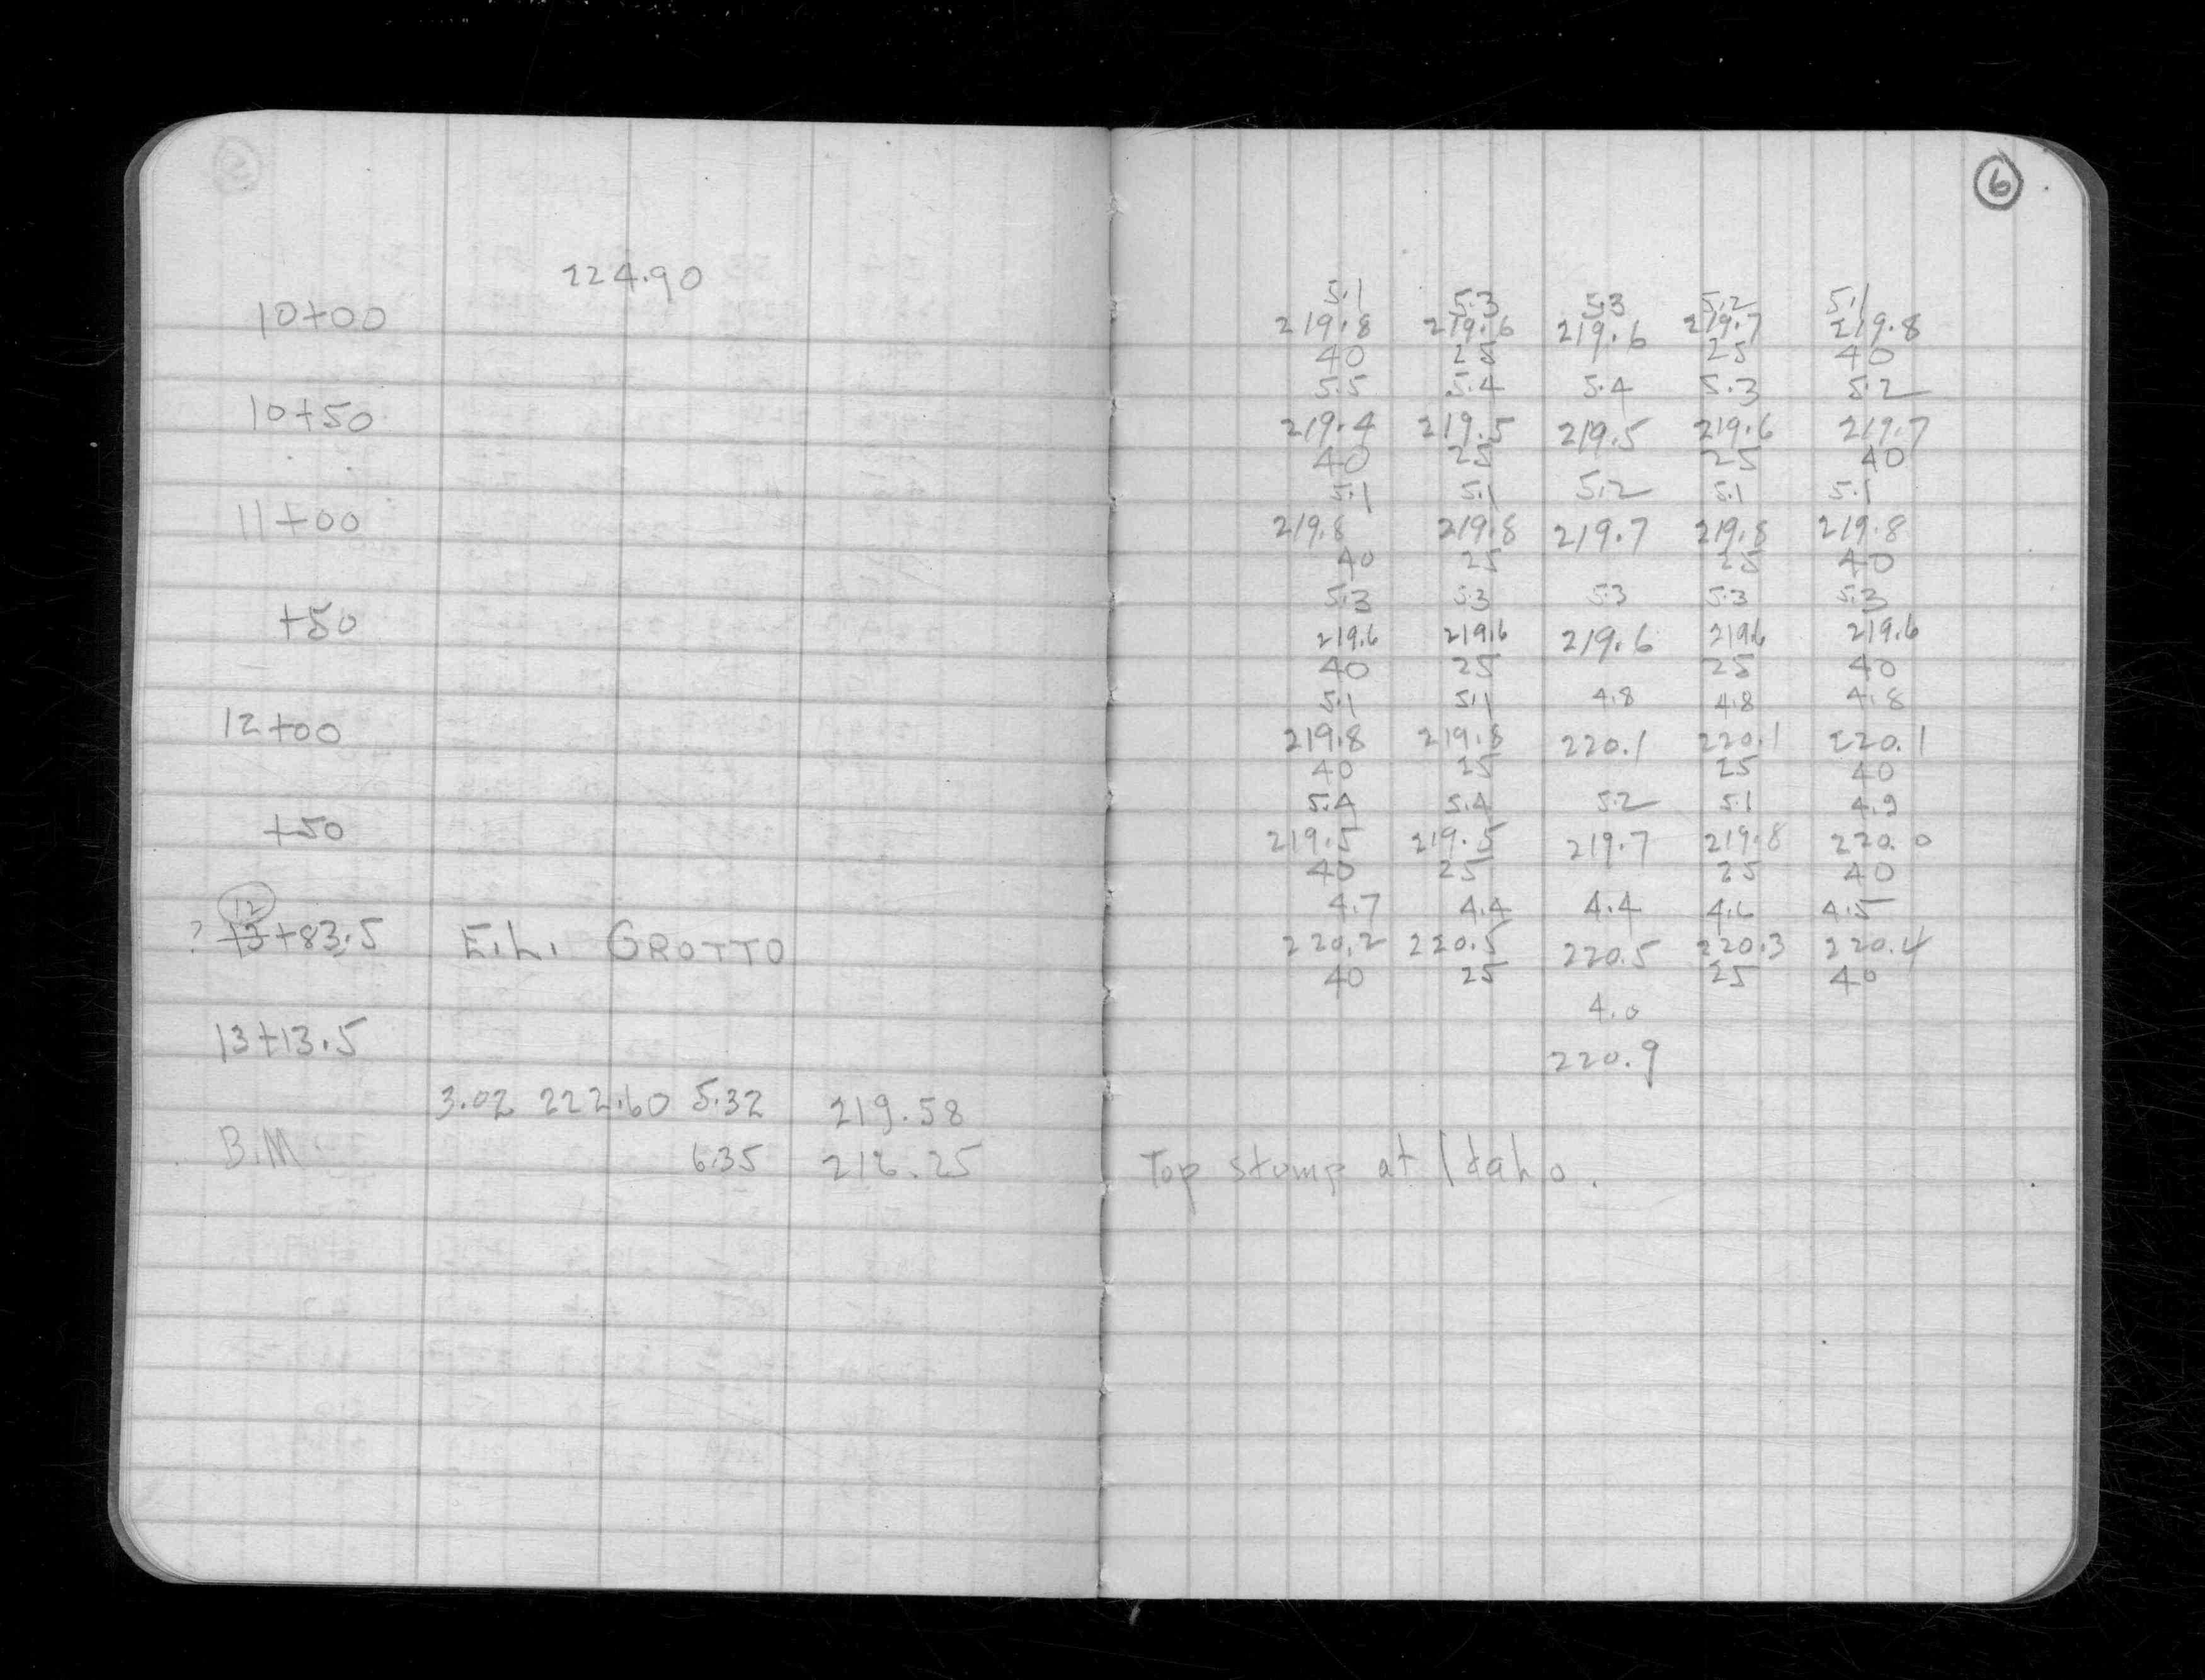 6
224.90
10+00
5.1 5.3 5.3 5.2 5.1
219.8 219.6 219.6 219.7 219.8
40 25 25 40
10+50
5.5 5.4 5.4 5.3 5.2
219.4 219.5 219.5 219.6 219.7
40 25 25 40
11+00
5.1 5.1 5.2 5.1 5.1
219.8 219.8 219.7 219.8 219.8
40 25 25 40
+50
5.3 5.3 5.3 5.3 5.3
219.6 219.6 219.6 219.6 219.6
40 25 25 40
12+00
5.1 5.1 4.8 4.8 4.8
219.8 219.8 220.1 220.1 220.1
40 25 25 40
+50
5.4 5.4 5.2 5.1 4.9
219.5 219.5 219.7 219.8 220.0
40 25 25 40
12
? 13+83.5 E.L. GROTTO
4.7 4.4 4.4 4.6 4.5
220.2 220.5 220.5 220.3 220.4
40 25 25 40
13+13.5
4.0
220.9
3.02 222.60 5.32 219.58
B.M. 6.35 216.25 Top stump at Idaho.